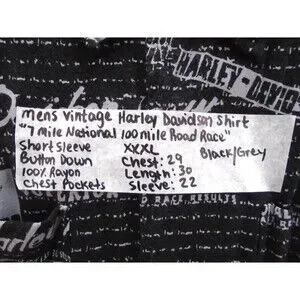 HARLEY-DAVID
Mens Vintage Harley Davidson Shirt
"7 mile National 100 mile Road Race"
Short Sleeve XXXL Black/Grey
Button Down Chest: 29
100% Rayon Length: 30
Chest Pockets Sleeve: 22
RACE RESULTS